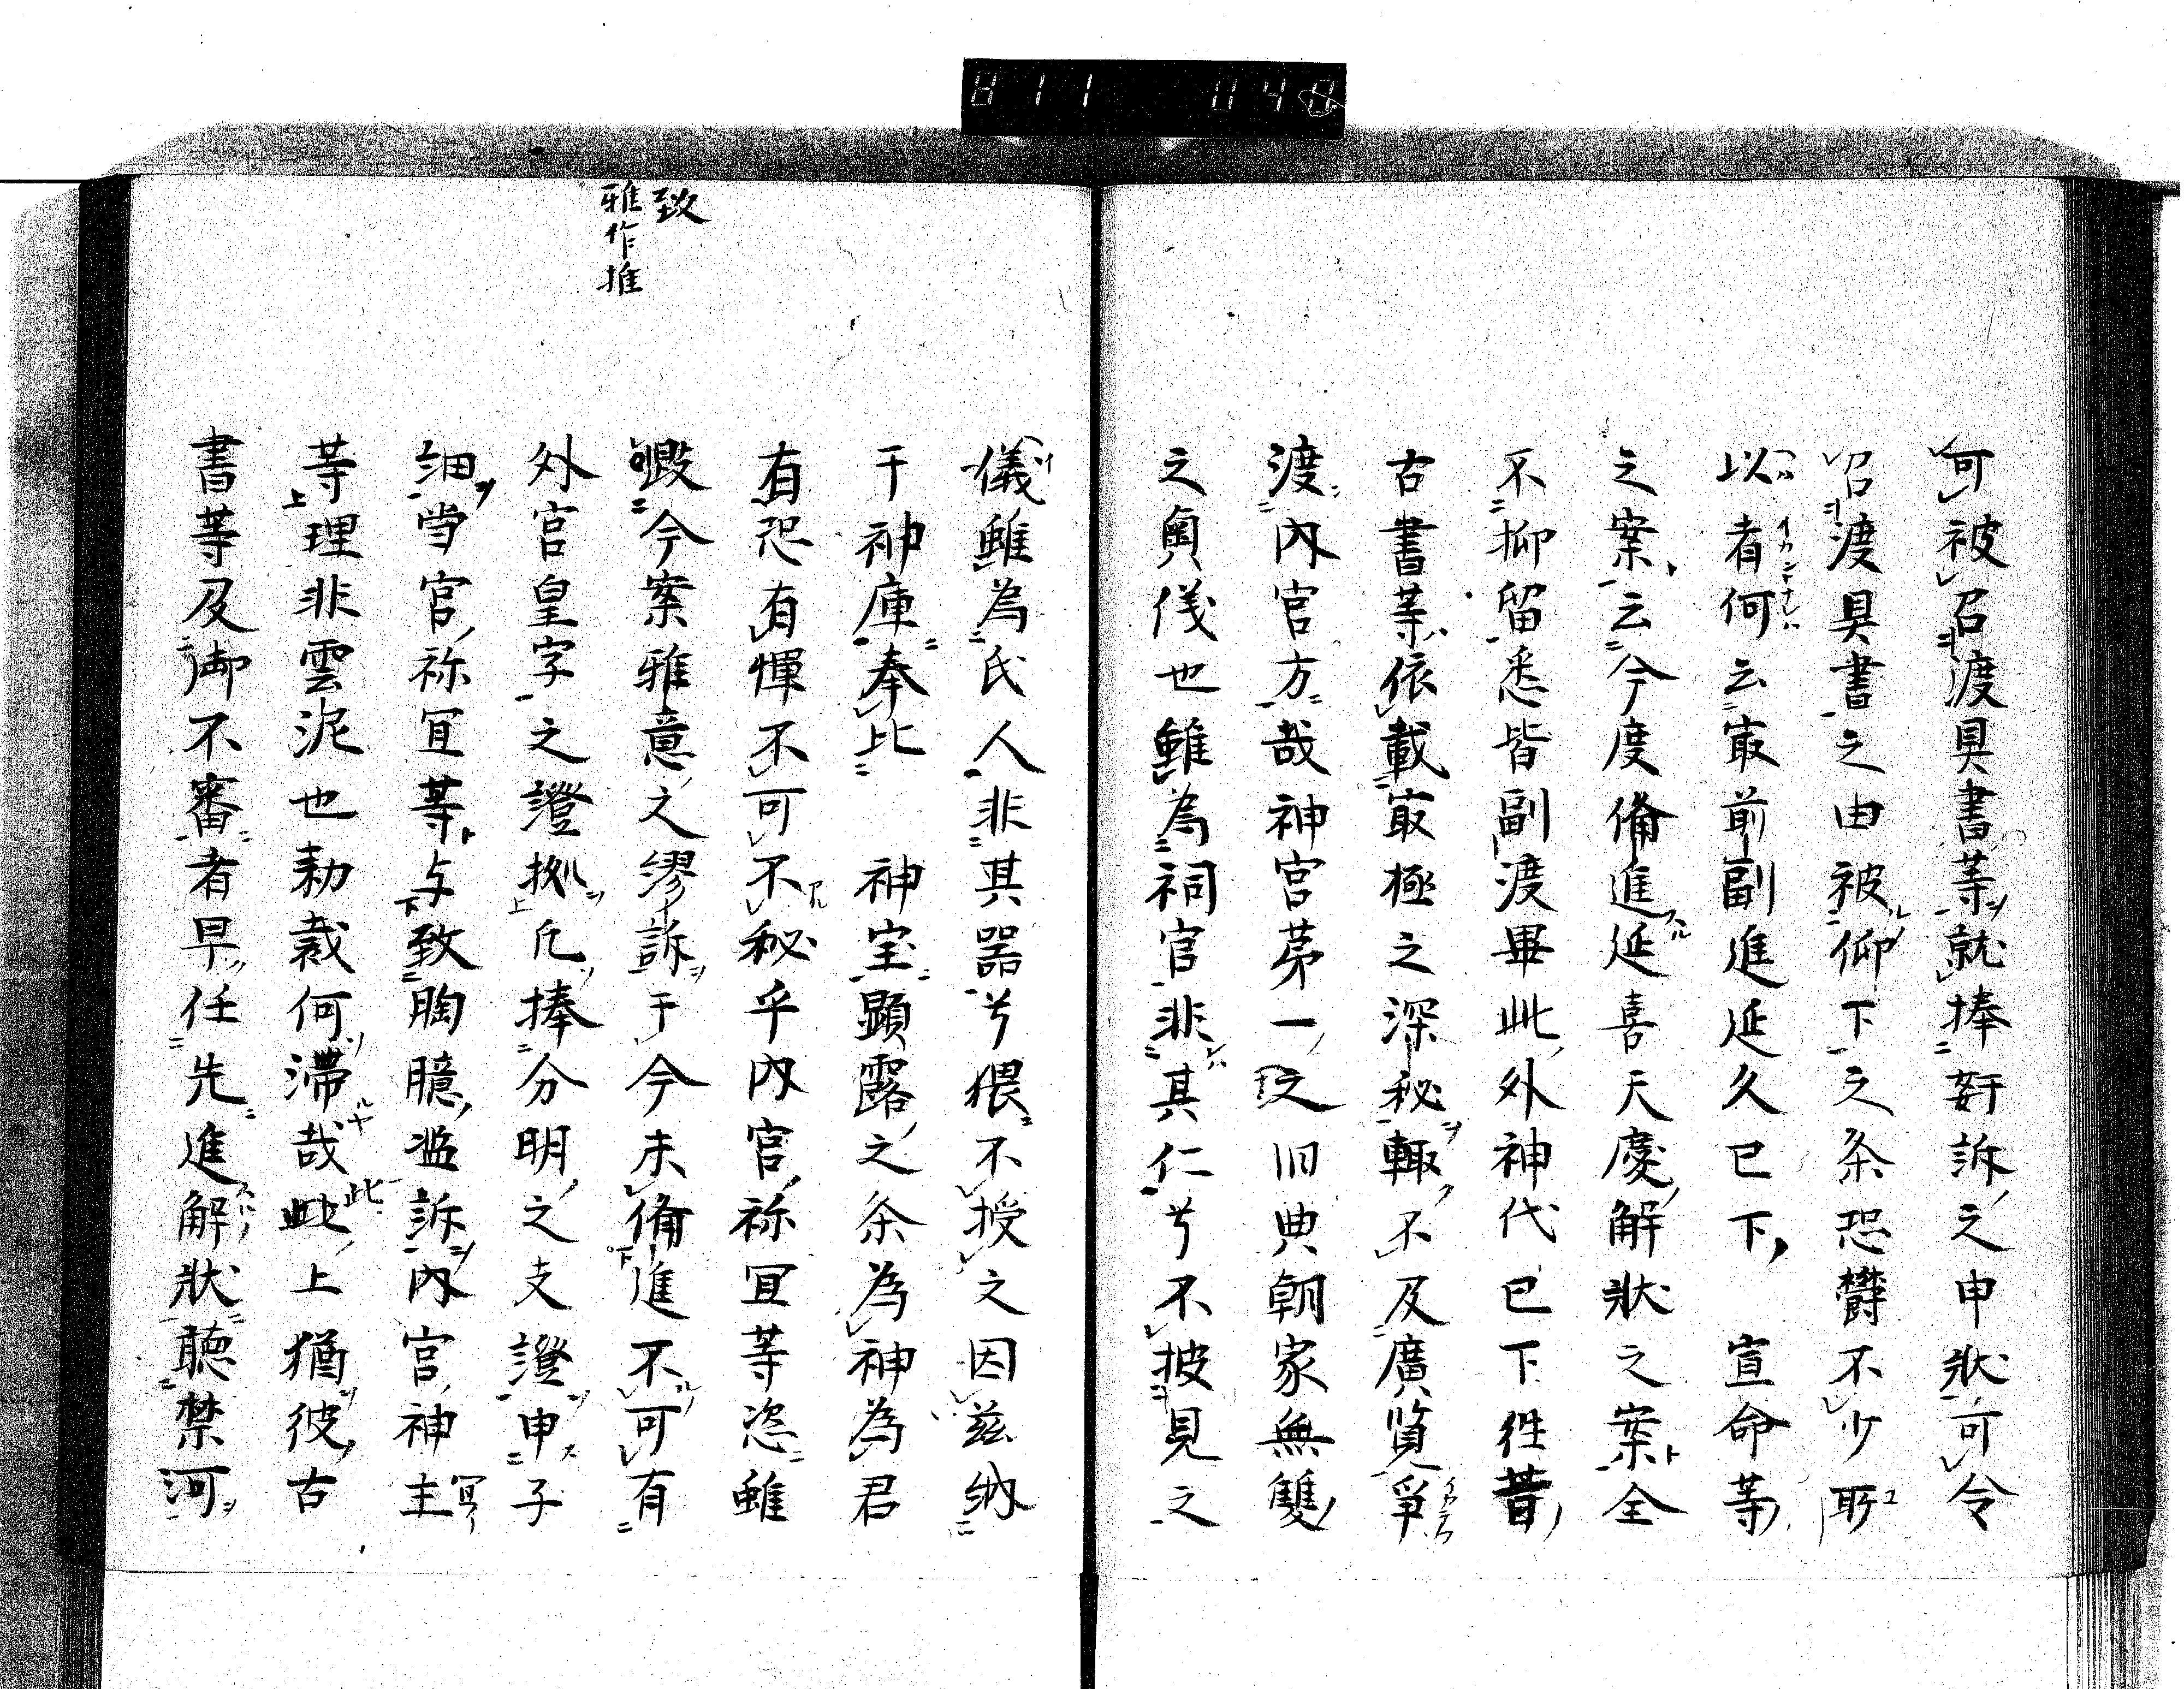 可被召渡具書等就捧奸訴之申状可令
召渡具書之由被仰下之条恐欝不少所
以者何云冣前副進延久已下　宣命等
之案云今度備進延喜天慶解状之案全
不抑留悉皆副渡畢此外神代已下徃昔
古書等依載冣極之深秘輙不及廣覧争
渡内官方哉神宮苐一之旧典朝家無雙
之奥儀也雖為祠官非其仁者不披見之
儀雖為氏人非其器者猥不授之因茲納
于神庫奉比　神宝顕露之条為神為君
有恐有憚不可不秘乎内宮祢冝等恣雖
今案雅意之謬訴于今未備進不可有
外宮皇字之證拠凢捧分明之支證申子
細当宮祢冝等与致胸臆濫訴内宮神主
等理非雲泥也勅裁何滞哉此上猶彼古
書等及御不審者早任先進解状聴禁河
致
雅作推
811 040